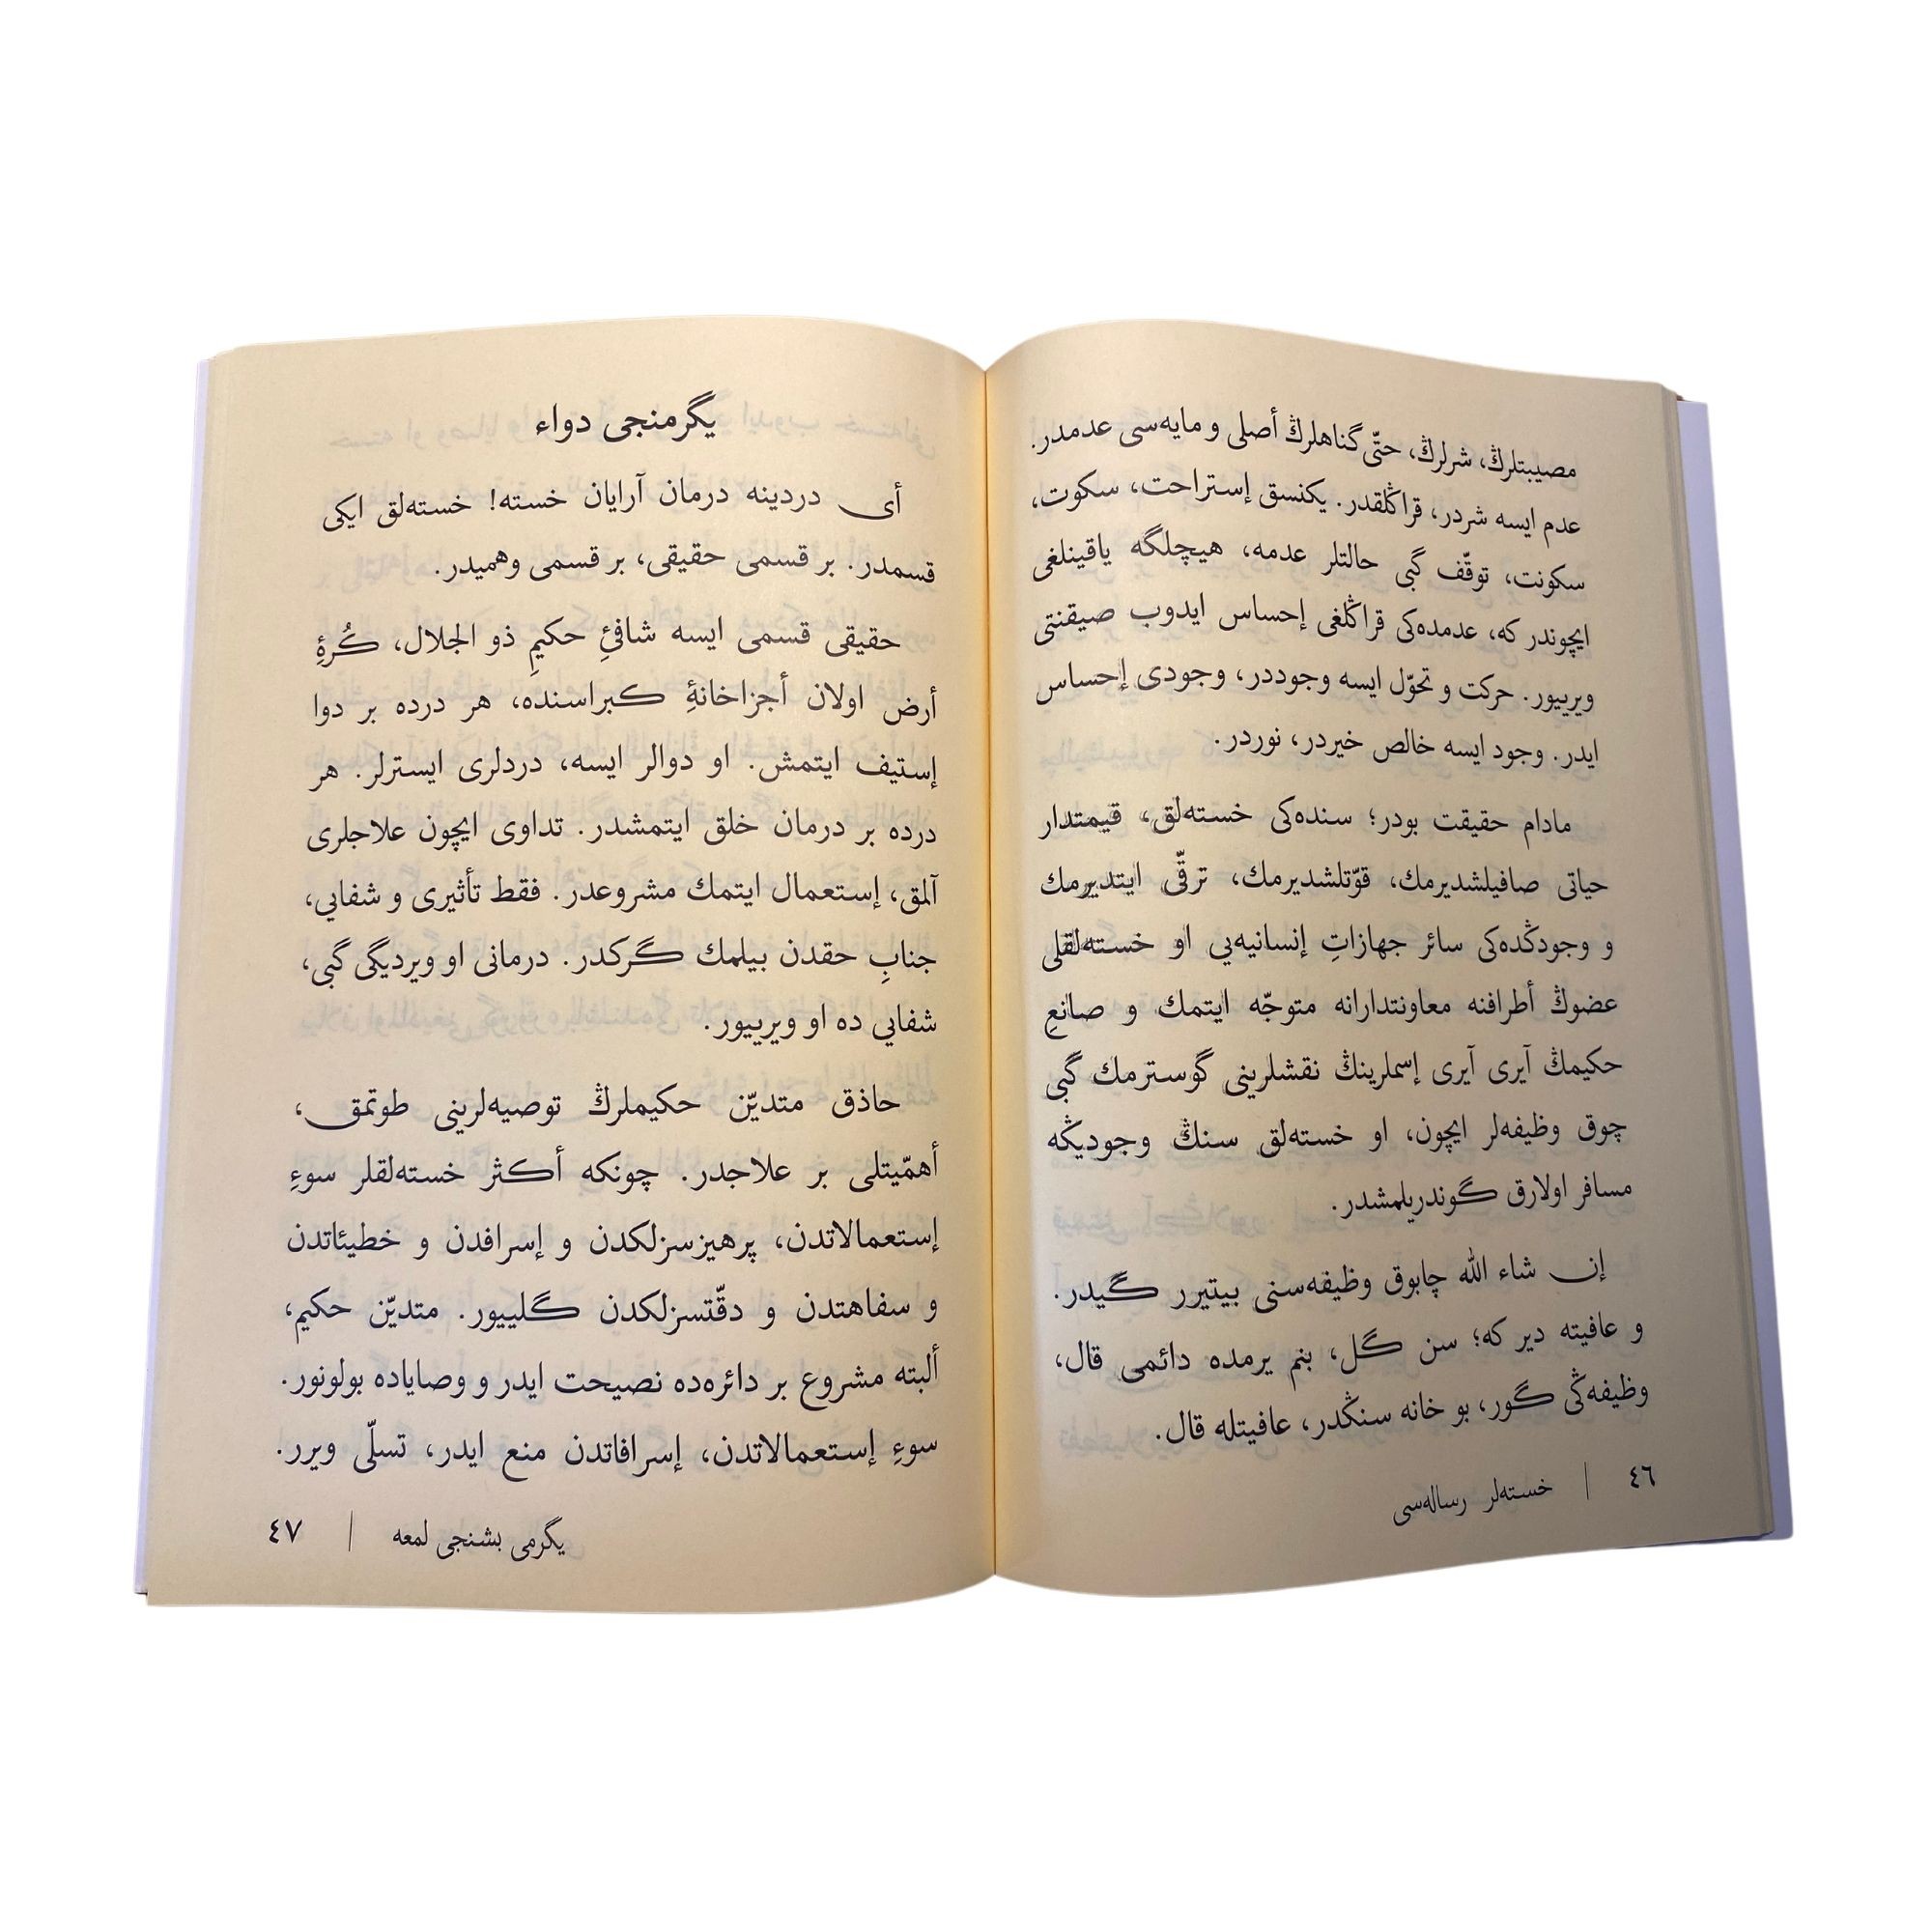 مصیبتلرڭ، شرلرڭ، حتّی گناهلرڭ أصلی و مایه‌سی عدمدر.
عدم ایسه شردر، قراڭلقدر. یكنسق إستراحت، سكوت،
سكونت، توقّف گبی حالتلر عدمه، هیچلگه یاقینلغی
ایچوندر كه، عدمده‌كی قراڭلغی إحساس ایدوب صیقنتی
ویرییور. حركت و تحوّل ایسه وجوددر، وجودی إحساس
ایدر. وجود ایسه خالص خیردر، نوردر.
مادام حقیقت بودر؛ سنده‌كی خسته‌لق، قیمتدار
حیاتی صافیلشدیرمك، قوّتلشدیرمك، ترقّی ایتدیرمك
و وجودڭده‌كی سائر جهازاتِ إنسانیه‌یی او خسته‌لقلی
عضوڭ أطرافنه معاونتدارانه متوجّه ایتمك و صانعِ
حكیمڭ آیری آیری إسملرینڭ نقشلرینی گوسترمك گبی
چوق وظیفه‌لر ایچون، او خسته‌لق سنڭ وجودیڭه
مسافر اولارق گوندریلمشدر.
إن شاء الله چابوق وظیفه‌سنی بیتیرر گیدر.
و عافیته دیر كه؛ سن گل، بنم یرمده دائمی قال،
وظیفه‌ڭی گور، بو خانه سنڭدر، عافیتله قال.
٤٦ | خسته‌لر رساله‌سی
یگرمنجی دواء
أی دردینه درمان آرایان خسته! خسته‌لق ایكی
قسمدر. بر قسمی حقیقی، بر قسمی وهمیدر.
حقیقی قسمی ایسه شافئِ حكیمِ ذو الجلال، كُرۀِ
أرض اولان أجزاخانۀِ كبراسنده، هر درده بر دوا
إستیف ایتمش. او دوالر ایسه، دردلری ایسترلر. هر
درده بر درمان خلق ایتمشدر. تداوی ایچون علاجلری
آلمق، إستعمال ایتمك مشروعدر. فقط تأثیری و شفایی،
جنابِ حقدن بیلمك گركدر. درمانی او ویردیگی گبی،
شفایی ده او ویرییور.
حاذق متدیّن حكیملرڭ توصیه‌لرینی طوتمق،
أهمّیتلی بر علاجدر. چونكه أكثر خسته‌لقلر سوءِ
إستعمالاتدن، پرهیزسزلكدن و إسرافدن و خطیئاتدن
و سفاهتدن و دقّتسزلكدن گلییور. متدیّن حكیم،
ألبته مشروع بر دائره‌ده نصیحت ایدر و وصایاده بولونور.
سوءِ إستعمالاتدن، إسرافاتدن منع ایدر، تسلّی ویرر.
یگرمی بشنجی لمعه | ٤٧